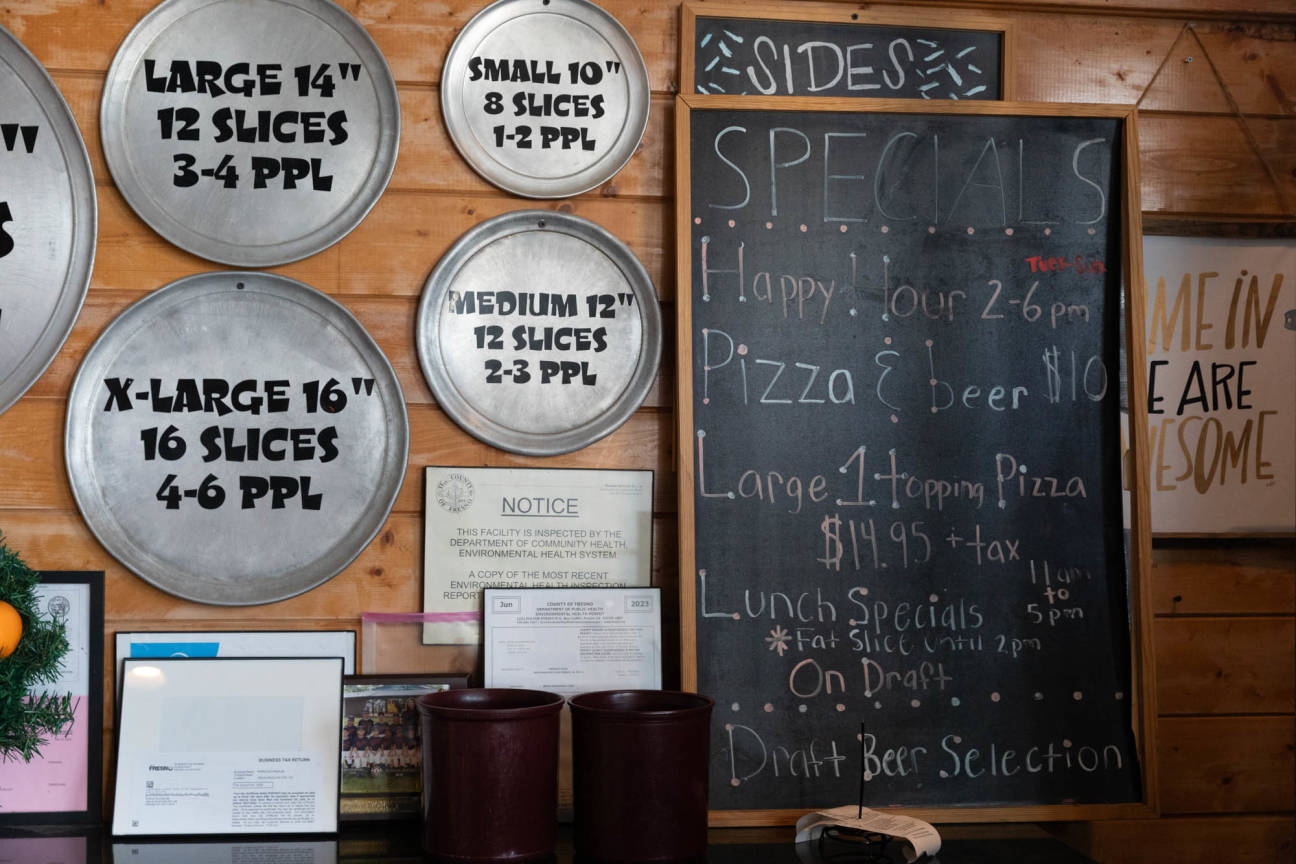 LARGE 14"
12 SLICES
3-4 PPL
SMALL 10"
8 SLICES
1-2 PPL
X-LARGE 16"
16 SLICES
4-6 PPL
MEDIUM 12"
12 SLICES
2-3 PPL
SIDES
SPECIALS
Happy Hour 2-6pm
Pizza & beer $10
Large 1 topping Pizza
$14.95 + tax
Lunch Specials
11am
to
5pm
*Fat Slice until 2pm
On Draft
Draft Beer Selection
ME IN
E ARE
ESOME
NOTICE
THIS FACILITY IS INSPECTED BY THE
DEPARTMENT OF COMMUNITY HEALTH,
ENVIRONMENTAL HEALTH SYSTEM
A COPY OF THE MOST RECENT
ENVIRONMENTAL HEALTH INSPECTION
REPORT
Jun
COUNTY OF FRESNO
DEPARTMENT OF PUBLIC HEALTH
ENVIRONMENTAL HEALTH PERMIT
2023
FRESNO
BUSINESS TAX RETURN